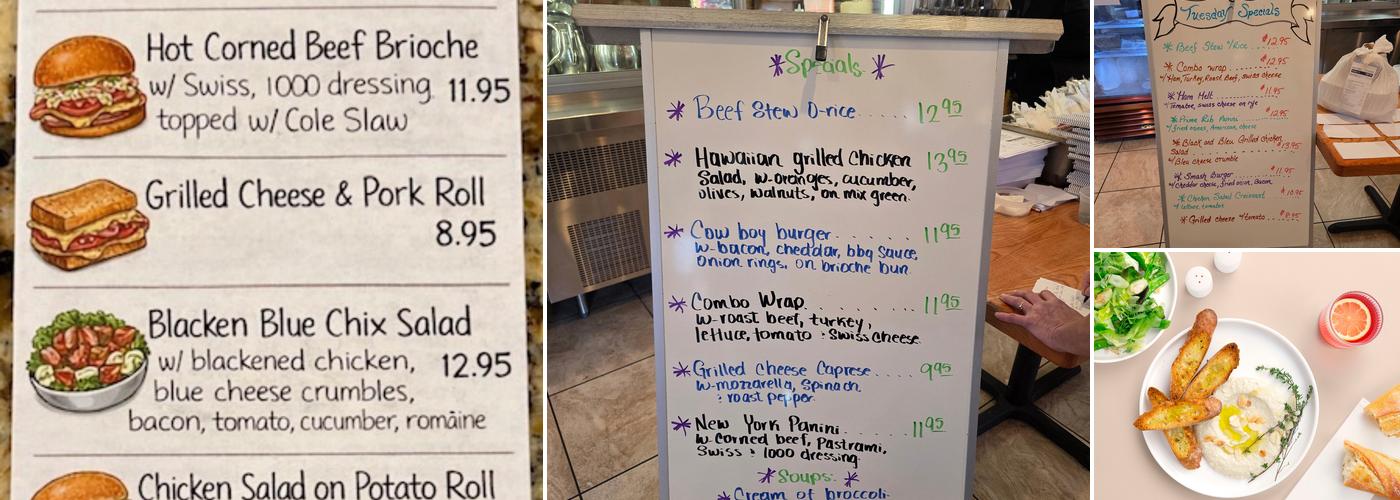 Hot Corned Beef Brioche
w/ Swiss, 1000 dressing 11.95
topped w/ Cole Slaw
Grilled Cheese & Pork Roll
8.95
Blacken Blue Chix Salad
w/ blackened chicken, 12.95
blue cheese crumbles,
bacon, tomato, cucumber, romaine
Chicken Salad on Potato Roll
Specials
Beef Stew O-rice ..... 12 95
Hawaiian grilled Chicken 13 95
Salad, w-oranges, cucumber,
olives, walnuts, on mix green.
Cow boy burger ...... 11 95
w-bacon, cheddar, bbq sauce,
onion rings, on brioche bun.
Combo Wrap ....... 11 95
w-roast beef, turkey,
lettuce, tomato : Swiss cheese
Grilled Cheese Caprese .... 9 95
w-mozzarella, Spinach
: roast pepper.
New York Panini ..... 11 95
w-corned beef, Pastrami,
Swiss : 1000 dressing.
Soups.
Cream of broccoli
Tuesday Specials
Beef Stew w/Rice $12.95
Combo wrap $12.95
w/ Ham, Turkey, Roast Beef, swiss cheese
Ham Melt $11.95
w/ Tomatoe, swiss cheese on rye
Prime Rib Panini $12.95
w/ fried onions, American cheese
Black and Bleu Grilled chicken
Salad $13.95
w/ Bleu cheese crumble
Smash Burger $11.95
w/ cheddar cheese, fried onion, Bacon
Chicken Salad Croissant $10.95
w/ lettuce, tomatoe
Grilled cheese w/ tomato